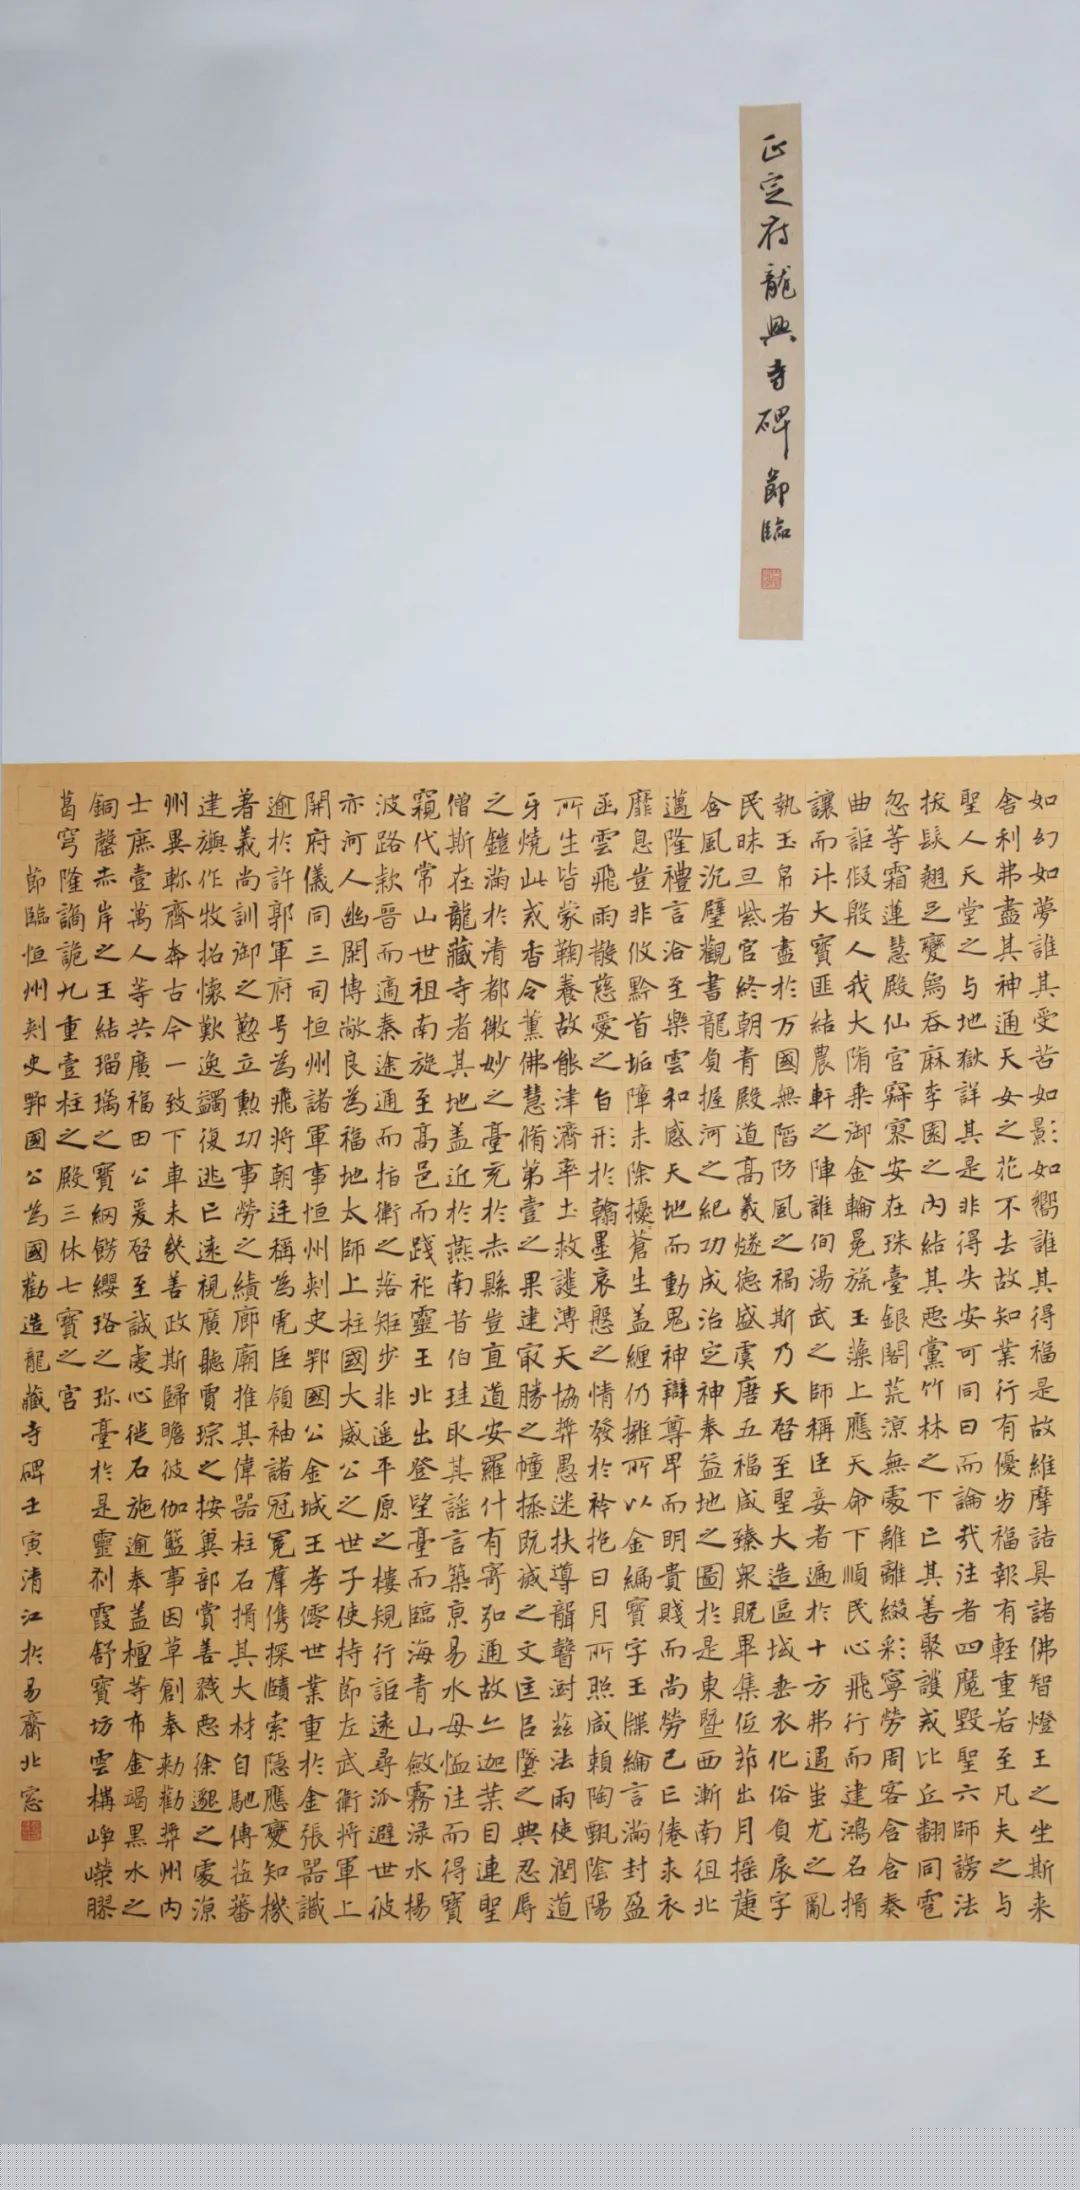 正定府龍興寺碑 節臨
如幻如夢誰其受苦如影如嚮誰其得福是故維摩詰具諸佛智燈王之坐斯来
舍利弗盡其神通天女之花不去故知業行有優劣福報有輕重若至凡夫之与
聖人天堂之与地獄詳其是非得失安可同日而論㦲往者四魔毀聖六師謗法
拔髮翹足變鳥吞麻李園之內結其惡黨竹林之下亡其善聚護戒比丘翻同雹
忽等霜蓮慧殿仙宮寂寞安在珠臺銀閣荒涼無處離離綴彩寧勞周客含含奏
曲詎假殷人我大隋乘御金輪冕旒玉藻上應天命下順民心飛行而建鴻名揖
讓而升大寶匪結農軒之陣誰侚湯武之師稱臣妾者遍於十方弗遇蚩尤之亂
執玉帛者盡於万國無陷防風之禍斯乃天啓至聖大造區域垂衣化俗負扆字
民昧旦紫宮終朝青殿道高羲燧德盛虞唐五福咸臻衆貺畢集伍莭出月摇蓮
含風沉璧觀書龍負握河之紀功成治定神奉益地之圖於是東暨西漸南徂北
邁隆禮言洽至樂雲和感天地而動鬼神辯尊卑而明貴賤而尚勞己亡倦求衣
靡息豈非攸黔首垢障未除擾蒼生盖纏仍擁所以金編寶字玉牒綸言滿封盈
函雲飛雨散慈愛之旨形於翰墨哀慇之情發於衿抱日月所照咸賴陶甄陰陽
所生皆蒙鞠養故能津濟率土救護溥天協奬愚迷扶導聾瞽澍茲法雨使潤道
牙燒此戒香令薰佛慧脩第壹之果建㝡勝之幢拯既滅之文匡呂墜之典忍辱
之鎧滿於清都微妙之臺充於赤縣豈直道安羅什有寄弘通故亦迦葉目連聖
僧斯在龍藏寺者其地盖近於燕南昔伯珪取其謠言築京易水母恤往而得寶
窺代常山世祖南旋至高邑而踐祚靈王北出登望臺而臨海青山斂霧渌水揚
波路欵晋而適秦途通而指衛之落矩步非遥平原之樓規行詎遠尋泒避世彼
亦河人幽閑博敞良為福地太師上柱國大威公之世子使持節左武衛將軍上
開府儀同三司恒州諸軍事恒州刺史鄂國公金城王孝僊世業重於金張器識
逾於許郭軍府号為飛將朝廷稱為虎臣領袖諸冠冕羣儁探賾索隱應變知機
著義尚訓御之懃立勳功事勞之績廊廟推其偉器柱石揖其大材自馳傳莅蕃
建旟作牧招懷歎逸蠲復逃亡遠視廣聽賈琮之按冀部賞善戮惡徐邈之處涼
州異軫齊奔古今一致下車未幾善政斯歸瞻彼伽籃事因草創奉勅勸奬州內
士庶壹萬人等共廣福田公爰啓至誠虔心徙石施逾奉盖檀等布金竭黑水之
銅罄赤岸之王結瑠璃之寶綱餝纓珞之珎臺於是靈剎霞舒寶坊雲構崢嶸膠
葛穹隆譎詭九重壹柱之殿三休七寶之宮
節臨恒州刺史鄂國公為國勸造龍藏寺碑壬寅清江於易齋北窓